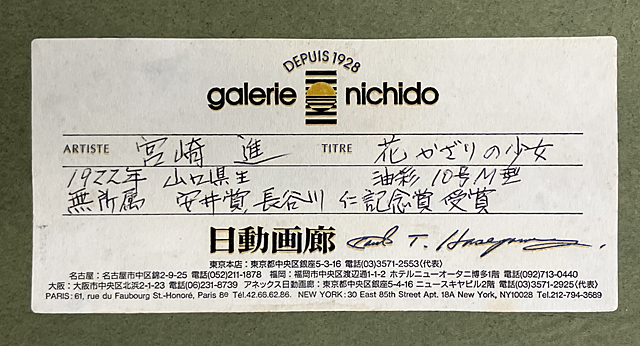 DEPUIS 1928
galerie nichido
ARTISTE 宮崎 進 TITRE 花かざりの少女
1922年 山口県生 油彩 10号M型
無所属 安井賞、長谷川 仁記念賞 受賞
日動画廊
東京本店：東京都中央区銀座5-3-16 電話(03)3571-2553〈代表〉
名古屋：名古屋市中区錦2-9-25 電話(052)211-1878 福岡：福岡市中央区渡辺通1-1-2 ホテルニューオータニ博多1階 電話(092)713-0440
大阪：大阪市中央区北浜2-1-23 電話(06)231-8739 アネックス日動画廊：東京都中央区銀座5-4-16 ニュースキヤビル2階 電話(03)3571-2925〈代表〉
PARIS : 61, rue du Faubourg St.-Honoré, Paris 8e Tél.42.66.62.86. NEW YORK : 30 East 85th Street Apt. 18A New York, NY10028 Tel.212-794-3589